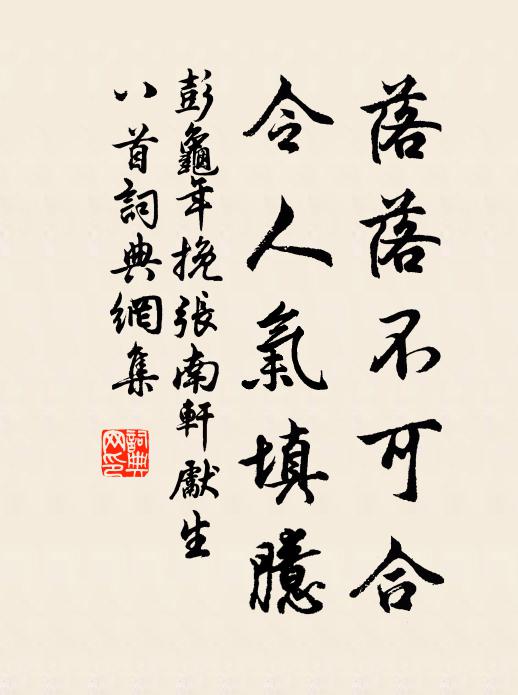 落落不可合
令人氣填臆
彭龜年挽張南軒獻生
八首詞典網集
詞典
网印